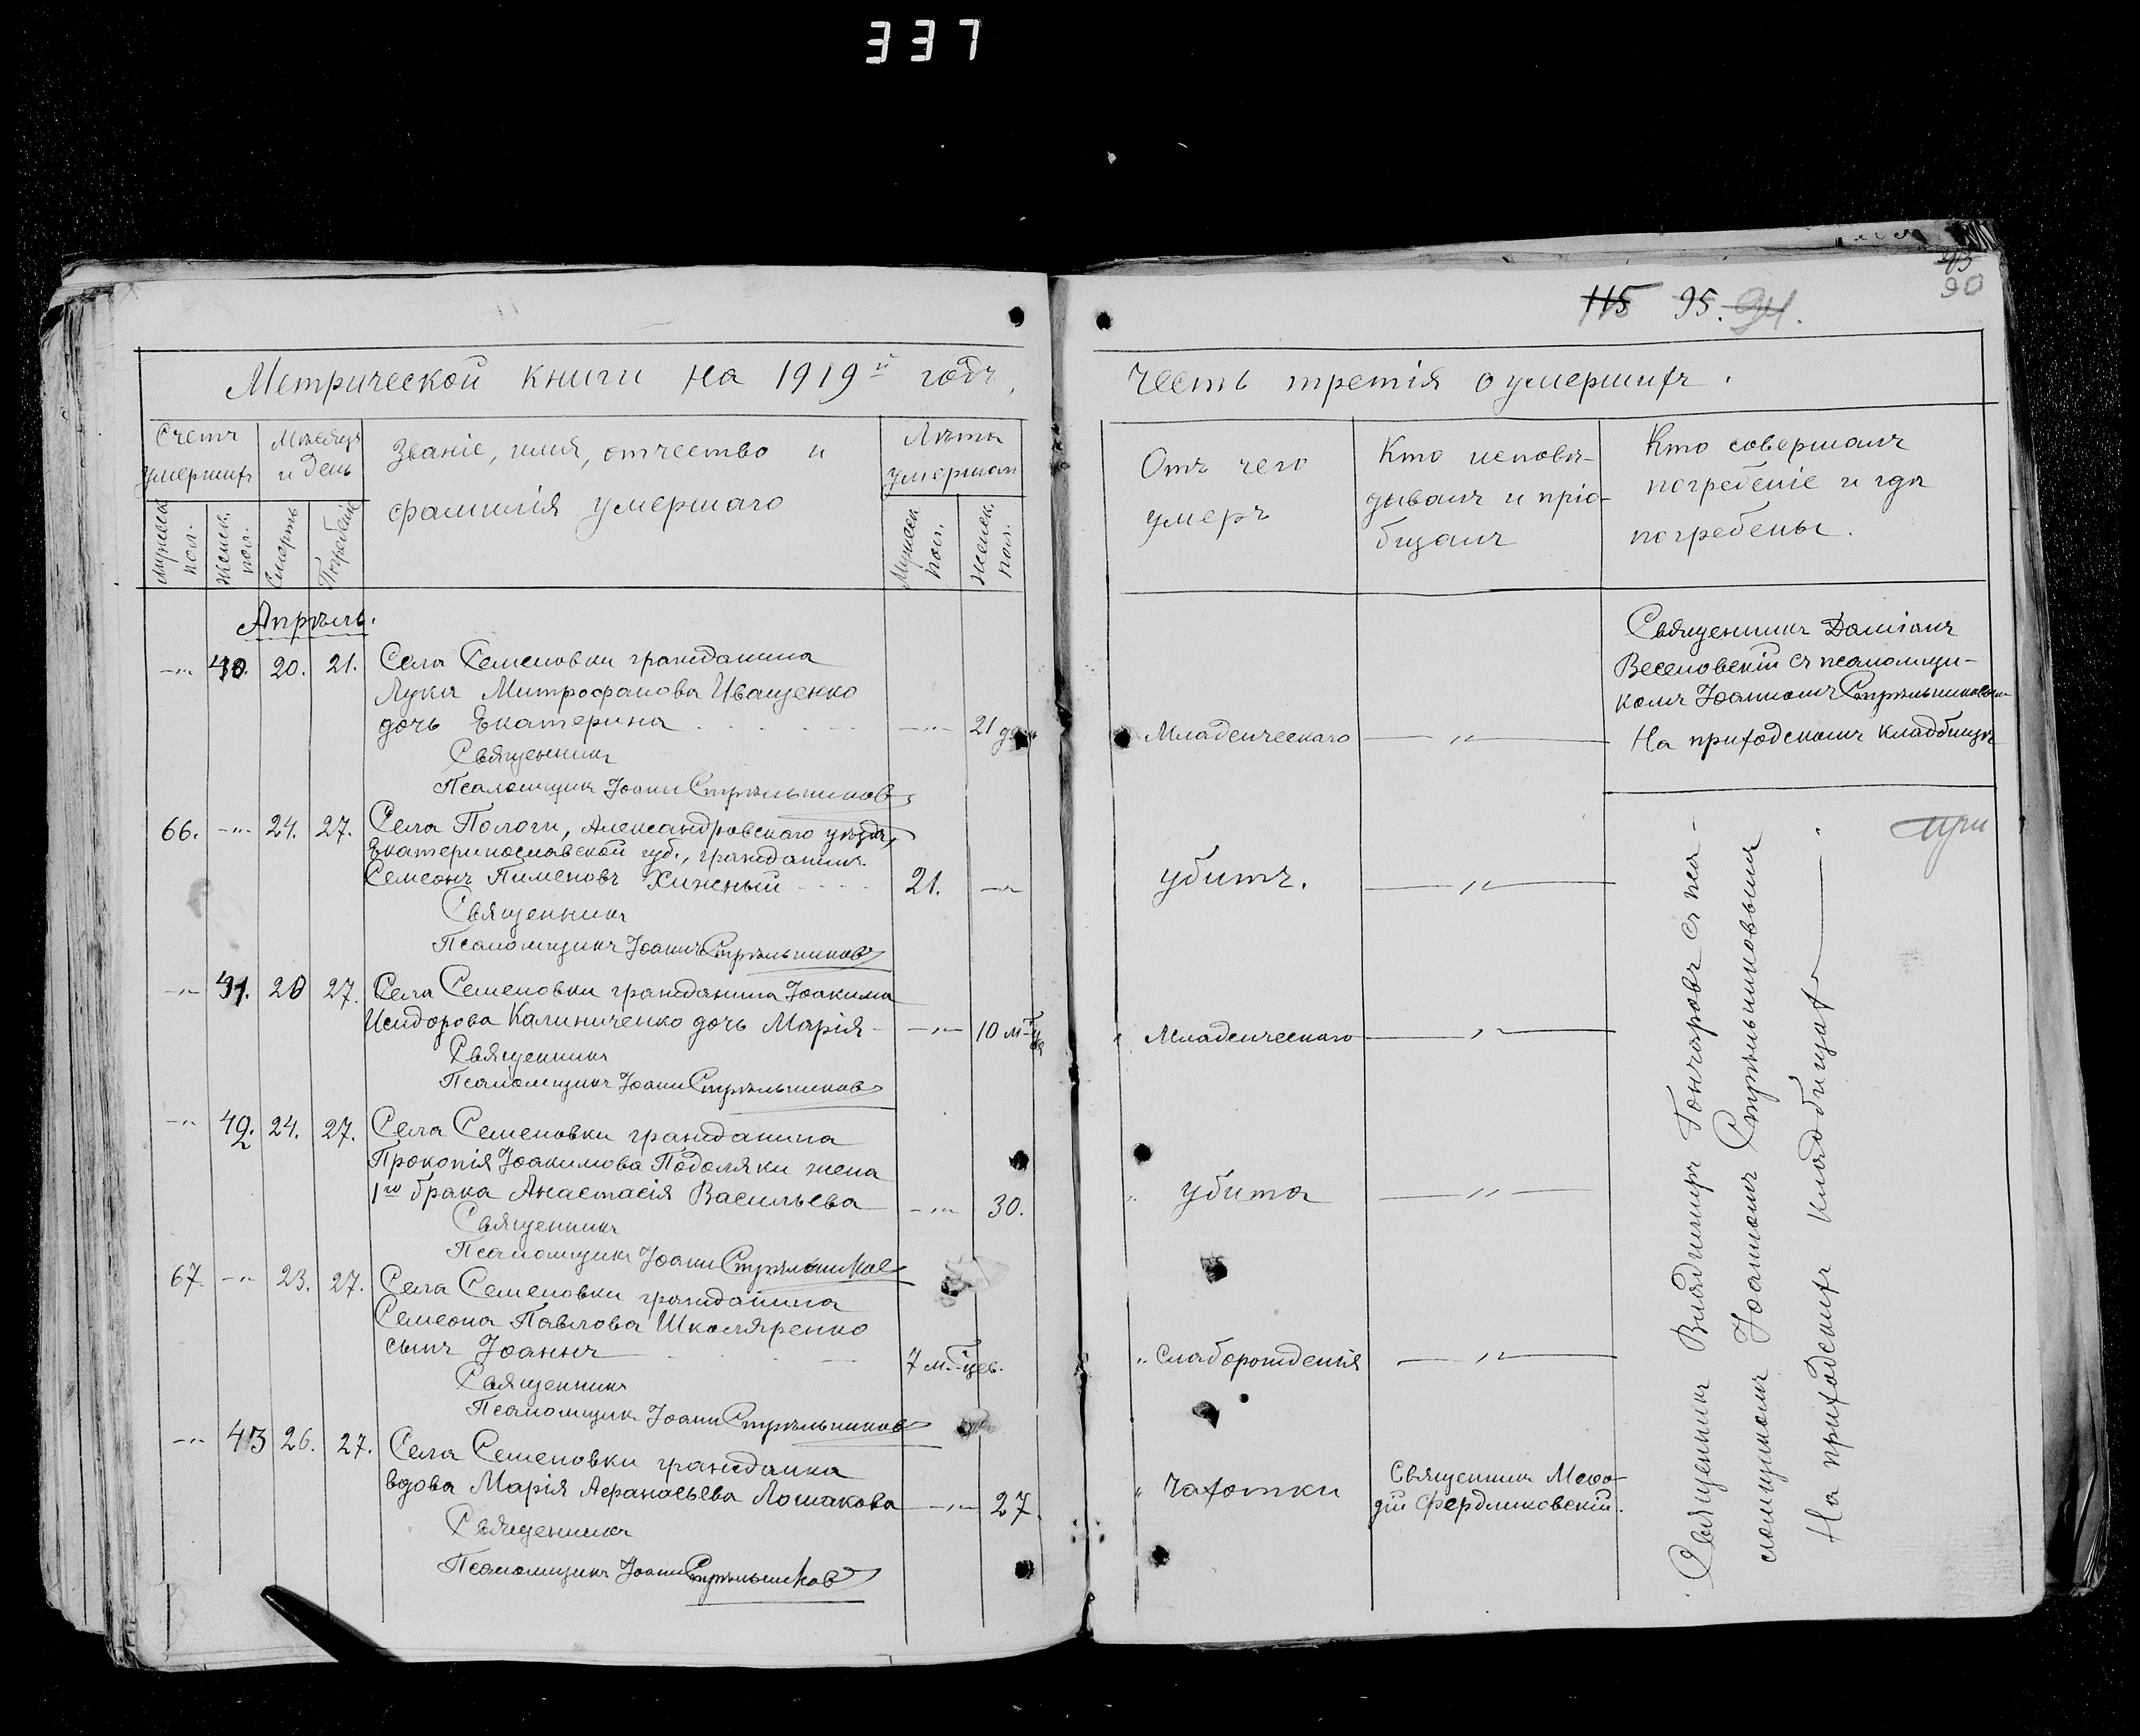 337
115 95. 94.
90
Метрической книги на 1919й годъ,
Счетъ умершихъ
Мѣсяцъ и день
Званіе, имя, отчество и
фамилія умершаго
Лѣта умершаго
Мужеск. пол.
Женск. пол.
Смерть
Погребеніе
Мужеск. пол.
Женск. пол.
Апрѣль.
-"- 40. 20. 21. Села Семеновки гражданина
Луки Митрофанова Иващенко
дочь Екатерина -"- 21 дн.
Священникъ
Псаломщикъ Іоаннъ Стрѣльниковъ
66. -"- 24. 27. Села Пологи, Александровскаго уѣзда,
Екатеринославской губ., гражданинъ
Семеонъ Пименовъ Хижный 21. -"-
Священникъ
Псаломщикъ Іоаннъ Стрѣльниковъ
-"- 41. 20 27. Села Семеновки гражданина Іоакима
Исидорова Калиниченко дочь Марія -"- 10 м-цев
Священникъ
Псаломщикъ Іоаннъ Стрѣльниковъ
-"- 42. 24. 27. Села Семеновки гражданина
Прокопія Іоакимова Подоляки жена
1го брака Анастасія Васильева -"- 30.
Священникъ
Псаломщикъ Іоаннъ Стрѣльниковъ
67. -"- 23. 27. Села Семеновки гражданина
Семеона Павлова Школяренко
сынъ Іоаннъ 7 м-цев.
Священникъ
Псаломщикъ Іоаннъ Стрѣльниковъ
-"- 43 26. 27. Села Семеновки гражданка
вдова Марія Афанасьева Лошакова -"- 27.
Священникъ
Псаломщикъ Іоаннъ Стрѣльниковъ
Честь третія о умершихъ.
Отъ чего
умеръ
Кто исповѣ-
дывалъ и прiо-
бщалъ
Кто совершалъ
погребеніе и гдѣ
погребены.
Священникъ Даміанъ
Веселовскій съ псаломщи-
комъ Іоанномъ Стрѣльниковымъ
Младенческаго -"- На приходскомъ кладбищѣ
убитъ. -"-
Младенческаго -"-
убита -"-
Слаборожденія -"-
Чахотки
Священникъ Мефо-
дій Фердликовскій.
Священникъ Владиміръ Гончаровъ съ пса-
ломщикомъ Іоанномъ Стрѣльниковымъ
На приходскихъ кладбищахъ
при